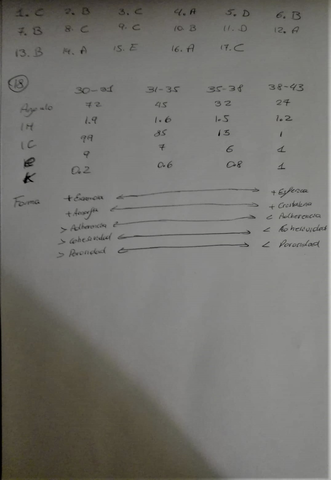 1. C 2. B 3. C 4. A 5. D 6. B
7. B 8. C 9. C 10. B 11. D 12. A
13. B 14. A 15. E 16. A 17. C
18 30-31 31-35 35-38 38-43
Angulo 72 45 32 27
IH 1.9 1.6 1.5 1.2
IC 99 85 15 1
e 9 7 6 1
K 0.2 0.6 0.8 1
Forma + Esferica
> Adherencia < Adherencia
> Cohesividad < Cohesividad
> Porosidad < Porosidad